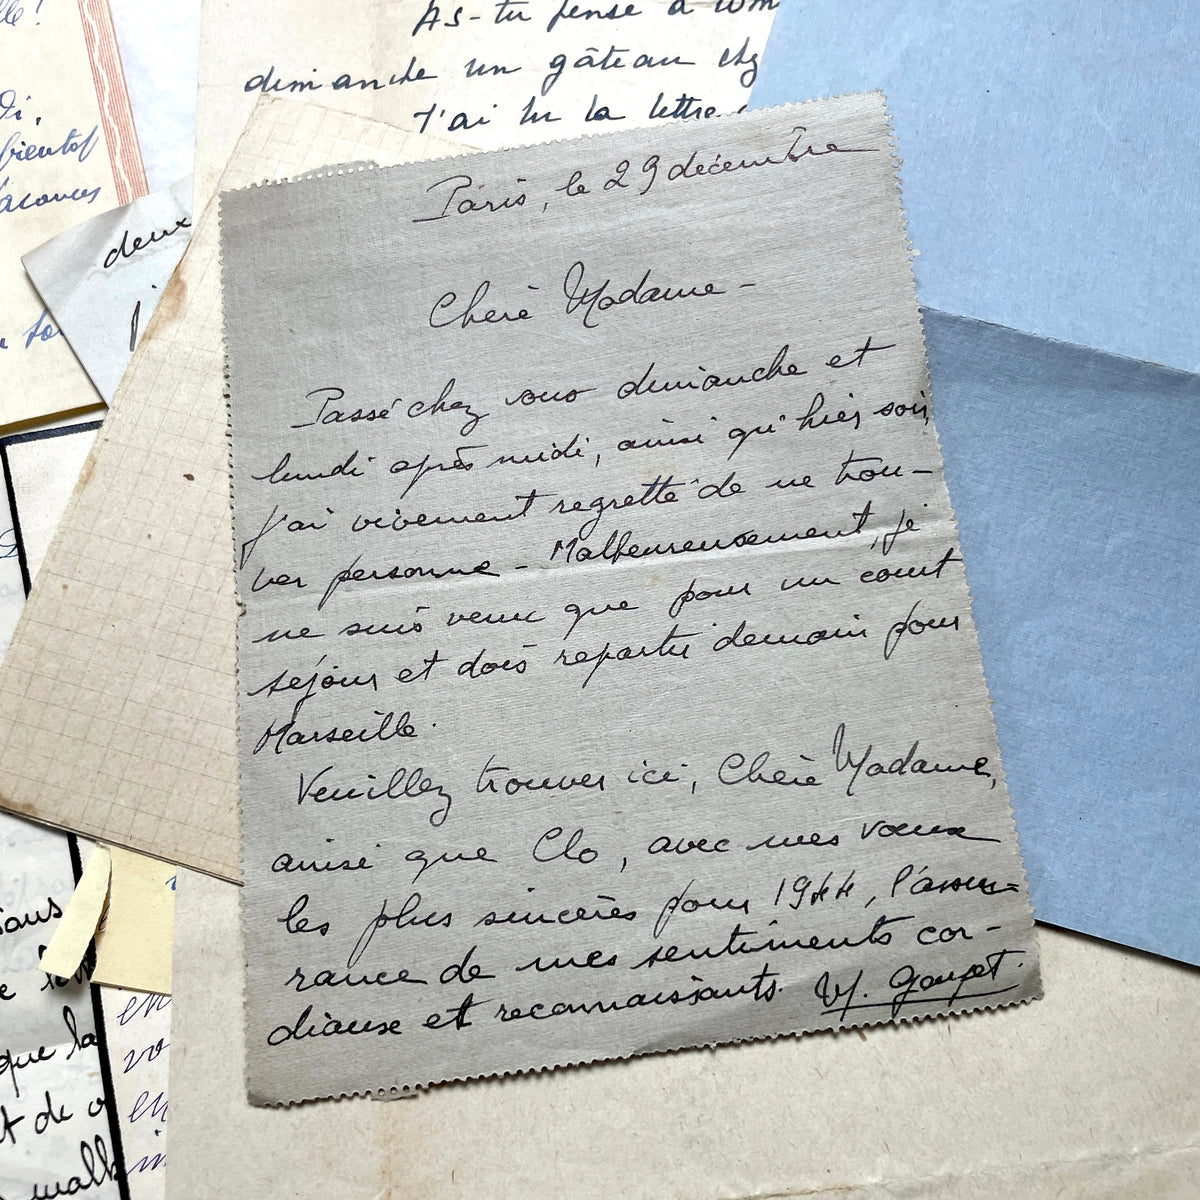 As-tu pensé à
dimanche un gâteau
J'ai lu la lettre
di,
bientôt
vacances
deux
Paris, le 29 décembre
Chère Madame -
Passé chez vous dimanche et
lundi après midi, ainsi qu'hier soir,
j'ai vivement regretté de ne trou-
ver personne - Malheureusement, je
ne suis venu que pour un court
séjour et dois repartir demain pour
Marseille.
Veuillez trouver ici, Chère Madame,
ainsi que Clo, avec mes vœux
les plus sincères pour 1944, l'assu-
rance de mes sentiments cor-
diaux et reconnaissants.
que la
t de
en
vo
en